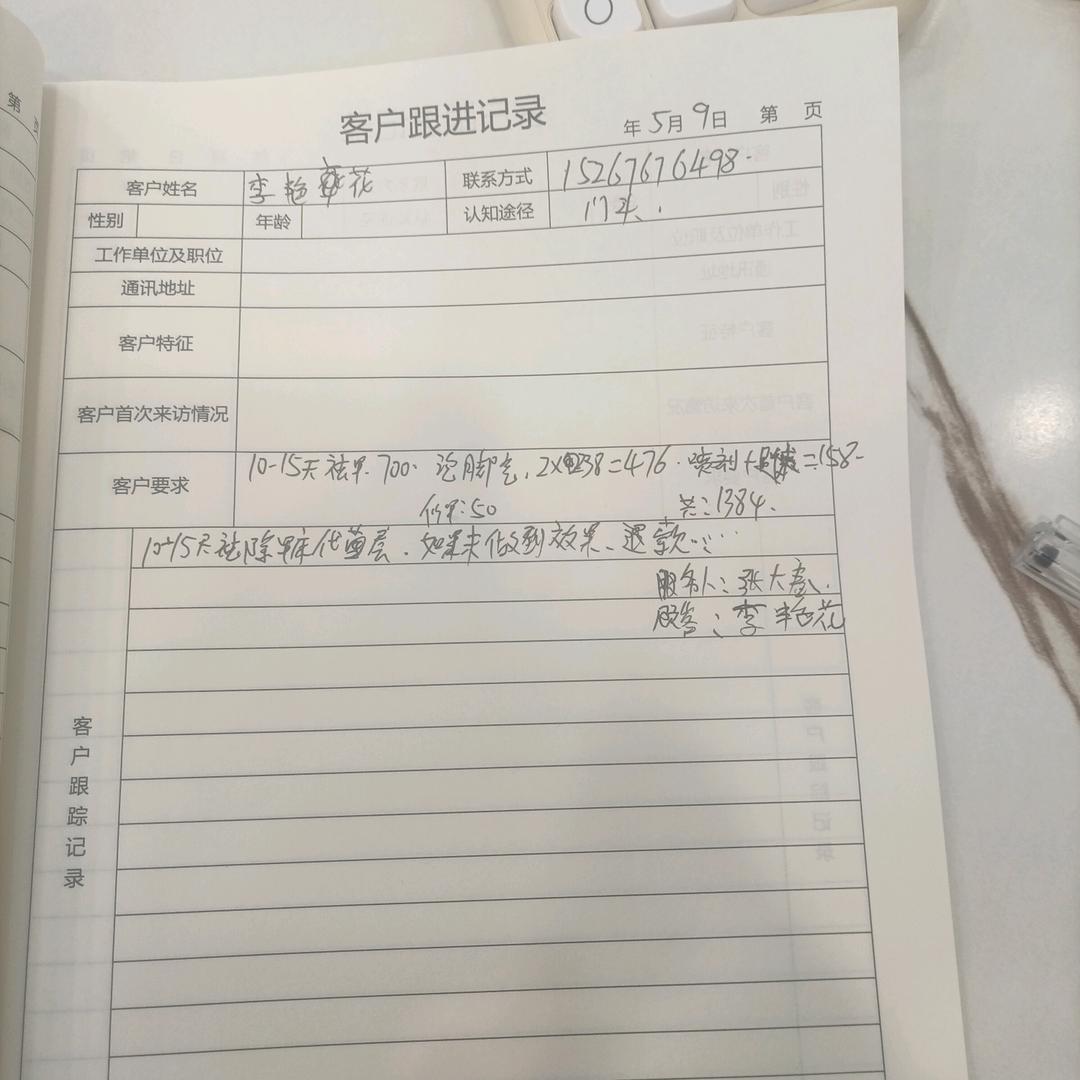 第 页
客户跟进记录
年 5月 9日 第 页
客户姓名 李艳花 联系方式 15267676498.
性别 年龄 认知途径 门头.
工作单位及职位
通讯地址
客户特征
客户首次来访情况
客户要求 10-15天祛 700. 脚气, 2×238=476. 喷剂+ =158-
50 共:1384.
10-15天祛除 层. 如果未做到效果、退款……
服务人: 张大
顾客: 李艳花
客户跟踪记录